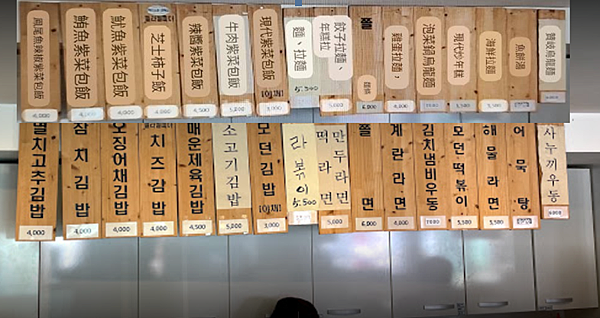 鳳尾魚辣椒紫菜包飯
4,000
鮪魚紫菜包飯
4,000
魷魚紫菜包飯
4,000
芝士柿子飯
4,000
辣醬紫菜包飯
4,500
牛肉紫菜包飯
5,000
現代紫菜包飯
3,000
麵、拉麵
5.500
餃子拉麵、
年糕拉
5,000
쫄
雞蛋拉麵,
4,000
泡菜鍋烏龍麵
現代炒年糕
5,500
海鮮拉麵
5,500
魚餅湯
讚岐烏龍麵
멸치고추김밥
4,000
참치김밥
4,000
오징어채김밥
4,000
치즈김밥
4,000
매운제육김밥
4,500
소고기김밥
5,000
모던김밥
3,000
라볶이
5.500
만두라면
떡라면
5,000
쫄면
6,000
계란라면
4,000
김치냄비우동
7000
모던떡볶이
5,500
해물라면
5,500
어묵탕
사누끼우동